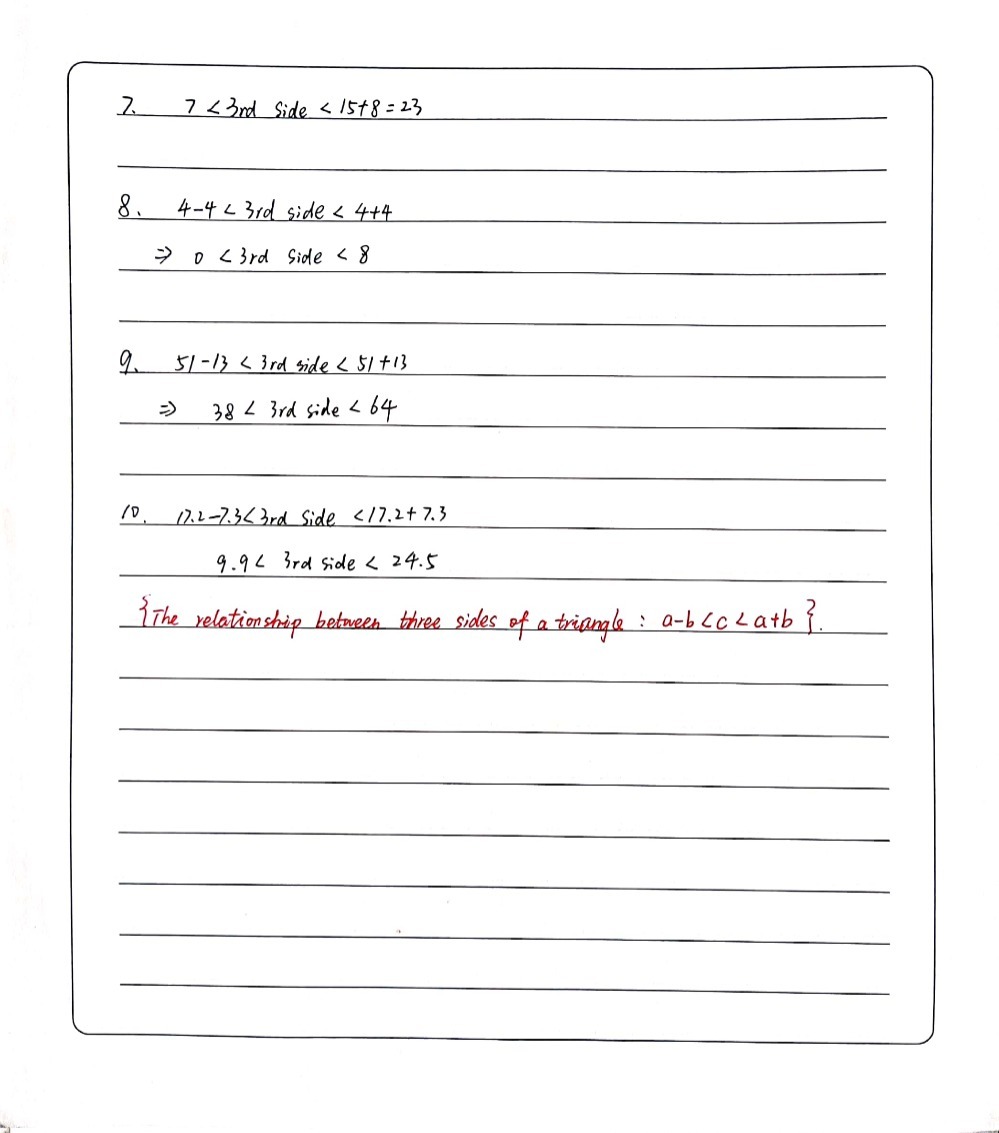 7. 7 < 3rd side < 15+8 = 23
8. 4-4 < 3rd side < 4+4
⇒ 0 < 3rd side < 8
9. 51-13 < 3rd side < 51+13
⇒ 38 < 3rd side < 64
10. 17.2-7.3 < 3rd side < 17.2+7.3
9.9 < 3rd side < 24.5
{The relationship between three sides of a triangle : a-b < c < a+b }.